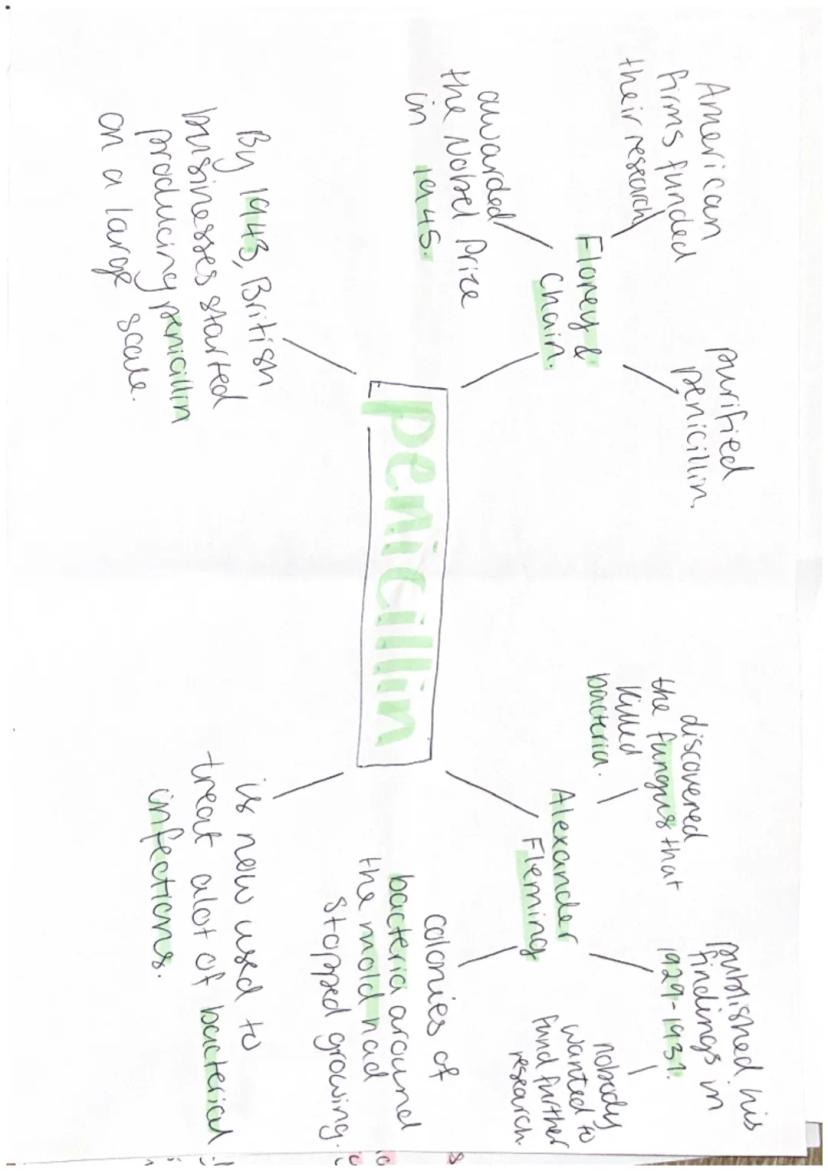 American
firms funded
their research
purified
penicillin.
Florey &
Chain.
awarded
the Nobel Prize
in 1945.
By 1943, British
businesses started
producing penicillin
on a large scale.
penicillin
discovered
the fungus that
killed
bacteria.
published his
findings in
1929-1931.
nobody
wanted to
fund further
research
Alexander
Fleming
colonies of
bacteria around
the mold had
stopped growing.
is now used to
treat alot of bacterial
infections.